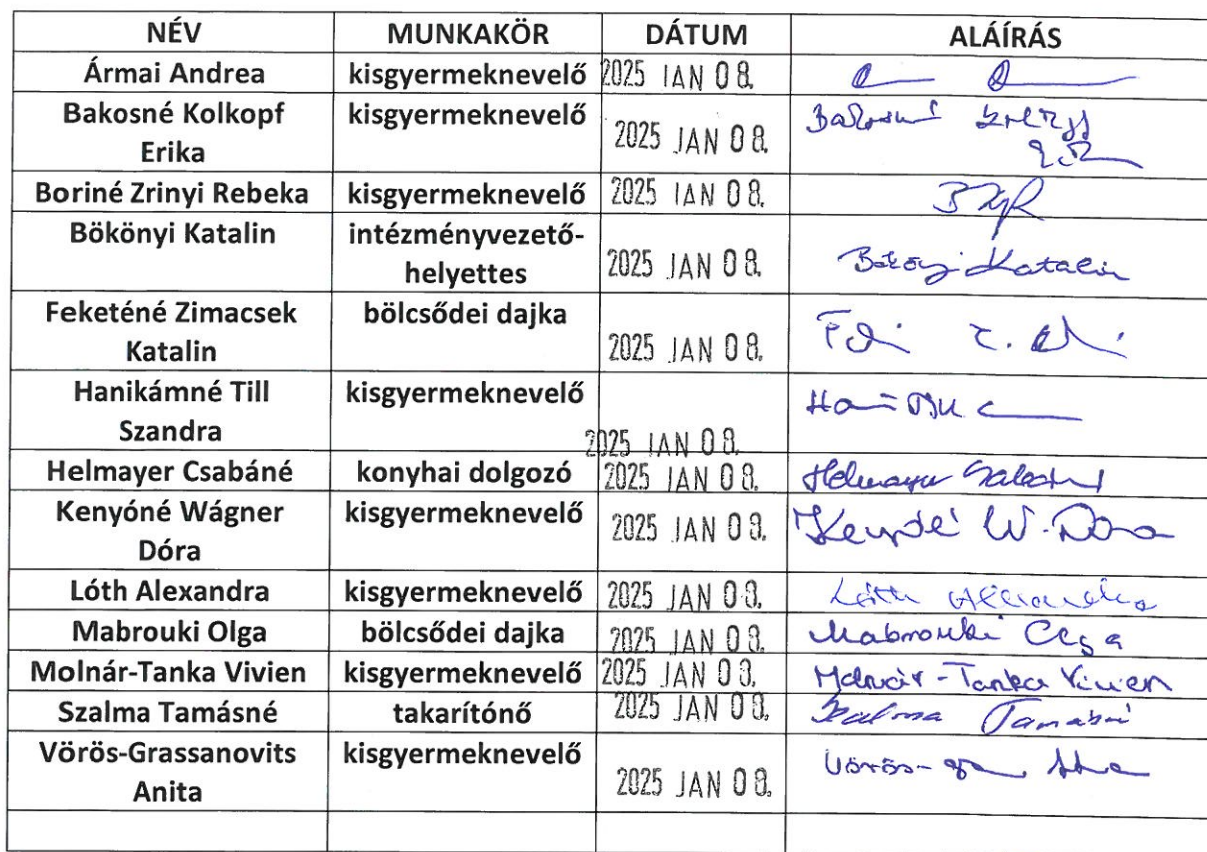 NÉV MUNKAKÖR DÁTUM ALÁÍRÁS
Ármai Andrea kisgyermeknevelő 2025 JAN 08.
Bakosné Kolkopf kisgyermeknevelő
Erika 2025 JAN 08.
Boriné Zrinyi Rebeka kisgyermeknevelő 2025 JAN 08.
Bökönyi Katalin intézményvezető-
helyettes 2025 JAN 08. Bökönyi Katalin
Feketéné Zimacsek bölcsődei dajka
Katalin 2025 JAN 08.
Hanikámné Till kisgyermeknevelő
Szandra
2025 JAN 08.
Helmayer Csabáné konyhai dolgozó 2025 JAN 08. Helmayer Csabáné
Kenyóné Wágner kisgyermeknevelő
Dóra 2025 JAN 08. W. Dóra
Lóth Alexandra kisgyermeknevelő 2025 JAN 08. Lóth Alexandra
Mabrouki Olga bölcsődei dajka 2025 JAN 08. Mabrouki Olga
Molnár-Tanka Vivien kisgyermeknevelő 2025 JAN 08. Molnár-Tanka Vivien
Szalma Tamásné takarítónő 2025 JAN 08. Szalma Tamásné
Vörös-Grassanovits kisgyermeknevelő Vörös-
Anita 2025 JAN 08.